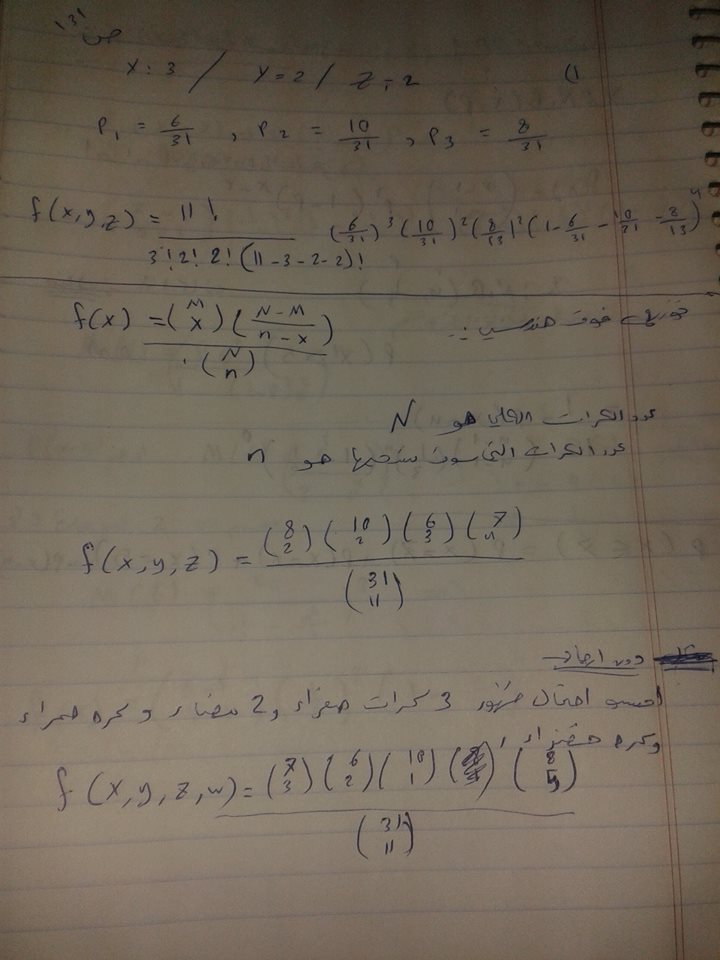 ص 131
1) X = 3 / Y = 2 / Z = 2
P₁ = 6/31 , P₂ = 10/31 , P₃ = 8/31
f(x,y,z) = 11! / 3! 2! 2! (11-3-2-2)! (6/31)³ (10/31)² (8/13)² (1 - 6/31 - 10/31 - 8/13)⁴
توزيع فوق هندسي :.
f(x) = (M x) (N-M / n-x) / (N n)
عدد الكرات الكلي هو N
عدد الكرات التي سوف نسحبها هو n
f(x,y,z) = (8 2) (10 2) (6 3) (7 4) / (31 11)
دون ارجاع
احسب احتمال ظهور 3 كرات صفراء و 2 بيضاء و كره حمراء
وكره خضراء
f(x,y,z,w) = (7 3) (6 2) (10 1) (8 5) / (31 11)